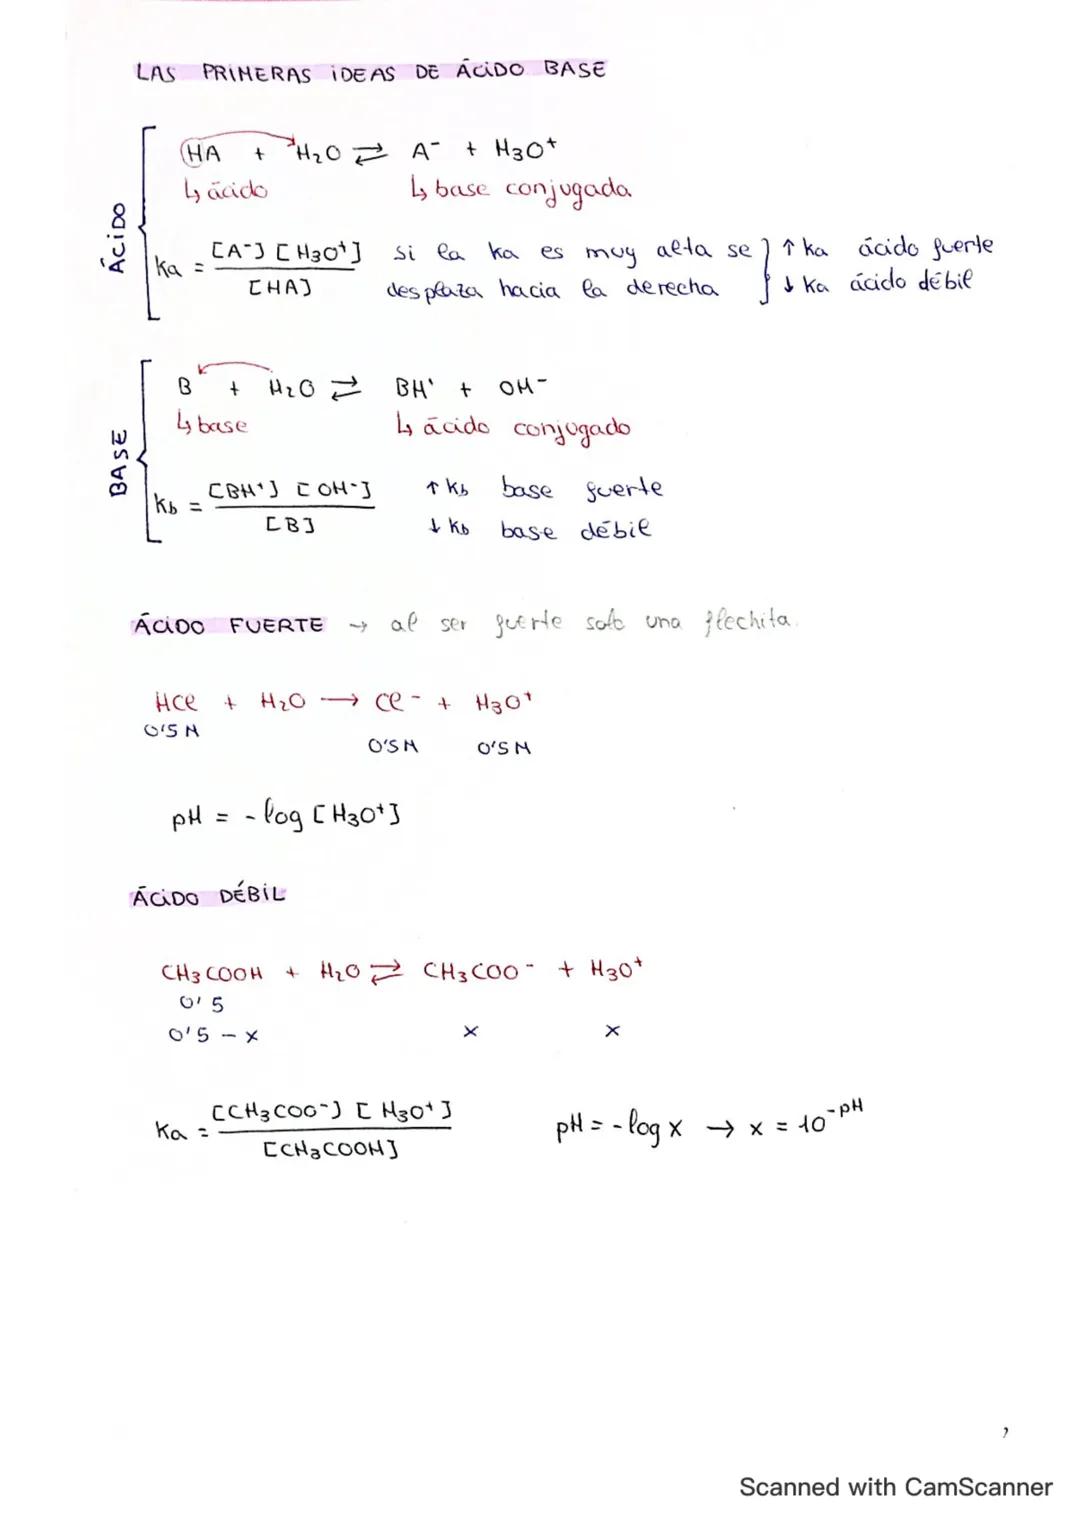 LAS PRIMERAS IDEAS DE ÁCIDO BASE
ÁCIDO
HA + H₂O ⇄ A⁻ + H₃O⁺
↳ ácido ↳ base conjugada
Ka = [A⁻] [H₃O⁺] / [HA]
si la ka es muy alta se
desplaza hacia la derecha
↑ Ka ácido fuerte
↓ Ka ácido débil
BASE
B + H₂O ⇄ BH⁺ + OH⁻
↳ base ↳ ácido conjugado
Kb = [BH⁺] [OH⁻] / [B]
↑ Kb base fuerte
↓ Kb base débil
ÁCIDO FUERTE → al ser fuerte solo una flechita.
HCl + H₂O → Cl⁻ + H₃O⁺
0'5 M
0'5 M 0'5 M
pH = - log [H₃O⁺]
ÁCIDO DÉBIL
CH₃COOH + H₂O ⇄ CH₃COO⁻ + H₃O⁺
0'5
0'5 - x x x
Ka = [CH₃COO⁻] [H₃O⁺] / [CH₃COOH]
pH = - log x → x = 10^-pH
Scanned with CamScanner